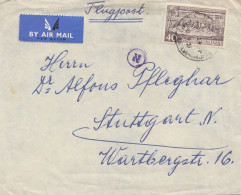 Flugpost.
BY AIR MAIL
40
R
Herrn
Dr Alfons Pfleghar
Stuttgart N.
Wartbergstr. 16.